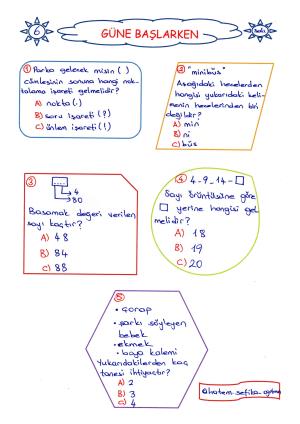 6
GÜNE BAŞLARKEN
① Parka gelecek misin (.)
cümlesinin sonuna hangi nok-
talama işareti gelmelidir?
A) nokta (.)
B) soru işareti (?)
C) ünlem işareti (!)
② "minibüs"
Aşağıdaki hecelerden
hangisi yukarıdaki keli-
menin hecelerinden biri
değildir?
A) min
B) ni
C) büs
③
4
80
Basamak değeri verilen
sayı kaçtır?
A) 48
B) 84
C) 88
④ 4-9-14-□
Sayı örüntüsüne göre
□ yerine hangisi gel
melidir?
A) 18
B) 19
C) 20
⑤
• çorap
• şarkı söyleyen
bebek
• ekmek
• boya kalemi
Yukarıdakilerden kaç
tanesi ihtiyaçtır?
A) 2
B) 3
C) 4